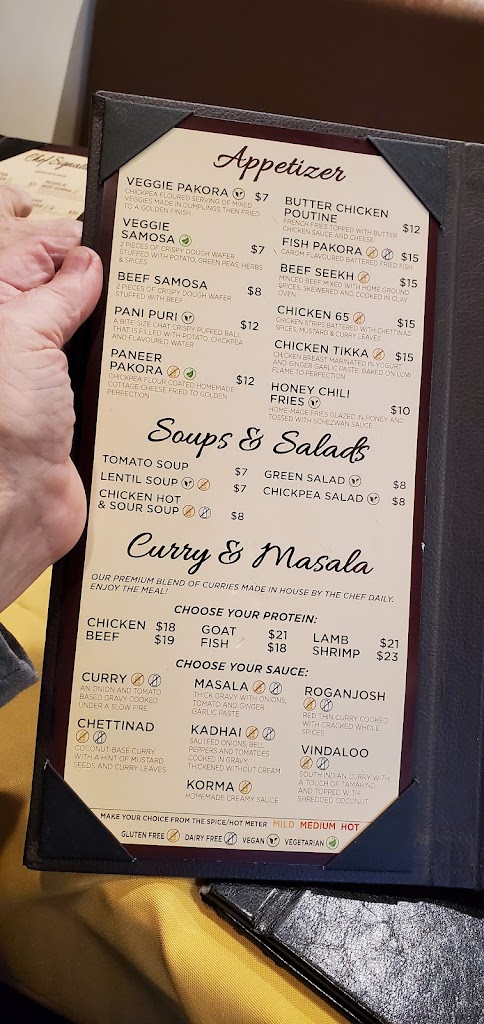 Chef Signat
Appetizer
VEGGIE PAKORA $7
CHICKPEA FLOURED SERVING OF MIXED
VEGGIES MADE IN DUMPLINGS THEN FRIED
TO A GOLDEN FINISH
VEGGIE
SAMOSA $7
2 PIECES OF CRISPY DOUGH WAFER
STUFFED WITH POTATO, GREEN PEAS, HERBS
& SPICES
BEEF SAMOSA $8
2 PIECES OF CRISPY DOUGH WAFER
STUFFED WITH BEEF
PANI PURI $12
A BITE-SIZE CHAT CRISPY PUFFED BALL
THAT IS FILLED WITH POTATO, CHICKPEA
AND FLAVOURED WATER
PANEER
PAKORA $12
CHICKPEA FLOUR COATED HOMEMADE
COTTAGE CHEESE FRIED TO GOLDEN
PERFECTION
BUTTER CHICKEN
POUTINE $12
FRENCH FRIES TOPPED WITH BUTTER
CHICKEN SAUCE AND CHEESE
FISH PAKORA $15
CAROM FLAVOURED BATTERED FRIED FISH
BEEF SEEKH $15
MINCED BEEF MIXED WITH HOME GROUND
SPICES, SKEWERED AND COOKED IN CLAY
OVEN
CHICKEN 65 $15
CHICKEN STRIPS BATTERED WITH CHETTINAD
SPICES, MUSTARD & CURRY LEAVES
CHICKEN TIKKA $15
CHICKEN BREAST MARINATED IN YOGURT
AND GINGER GARLIC PASTE, BAKED ON LOW
FLAME TO PERFECTION
HONEY CHILI
FRIES $10
HOME-MADE FRIES GLAZED IN HONEY AND
TOSSED WITH SCHEZWAN SAUCE
Soups & Salads
TOMATO SOUP $7
LENTIL SOUP $7
CHICKEN HOT
& SOUR SOUP $8
GREEN SALAD $8
CHICKPEA SALAD $8
Curry & Masala
OUR PREMIUM BLEND OF CURRIES MADE IN HOUSE BY THE CHEF DAILY.
ENJOY THE MEAL!
CHOOSE YOUR PROTEIN:
CHICKEN $18 GOAT $21 LAMB $21
BEEF $19 FISH $18 SHRIMP $23
CHOOSE YOUR SAUCE:
CURRY
AN ONION AND TOMATO
BASED GRAVY COOKED
UNDER A SLOW FIRE
CHETTINAD
COCONUT-BASE CURRY
WITH A HINT OF MUSTARD
SEEDS AND CURRY LEAVES
MASALA
THICK GRAVY WITH ONIONS,
TOMATO AND GINGER
GARLIC PASTE
KADHAI
SAUTÉED ONIONS, BELL
PEPPERS AND TOMATOES
COOKED IN GRAVY,
THICKENED WITHOUT CREAM
KORMA
HOMEMADE CREAMY SAUCE
ROGANJOSH
RED THIN CURRY COOKED
WITH CRACKED WHOLE
SPICES
VINDALOO
SOUTH INDIAN CURRY WITH
A TOUCH OF TAMARIND
AND TOPPED WITH
SHREDDED COCONUT
MAKE YOUR CHOICE FROM THE SPICE/HOT METER MILD MEDIUM HOT
GLUTEN FREE DAIRY FREE VEGAN VEGETARIAN